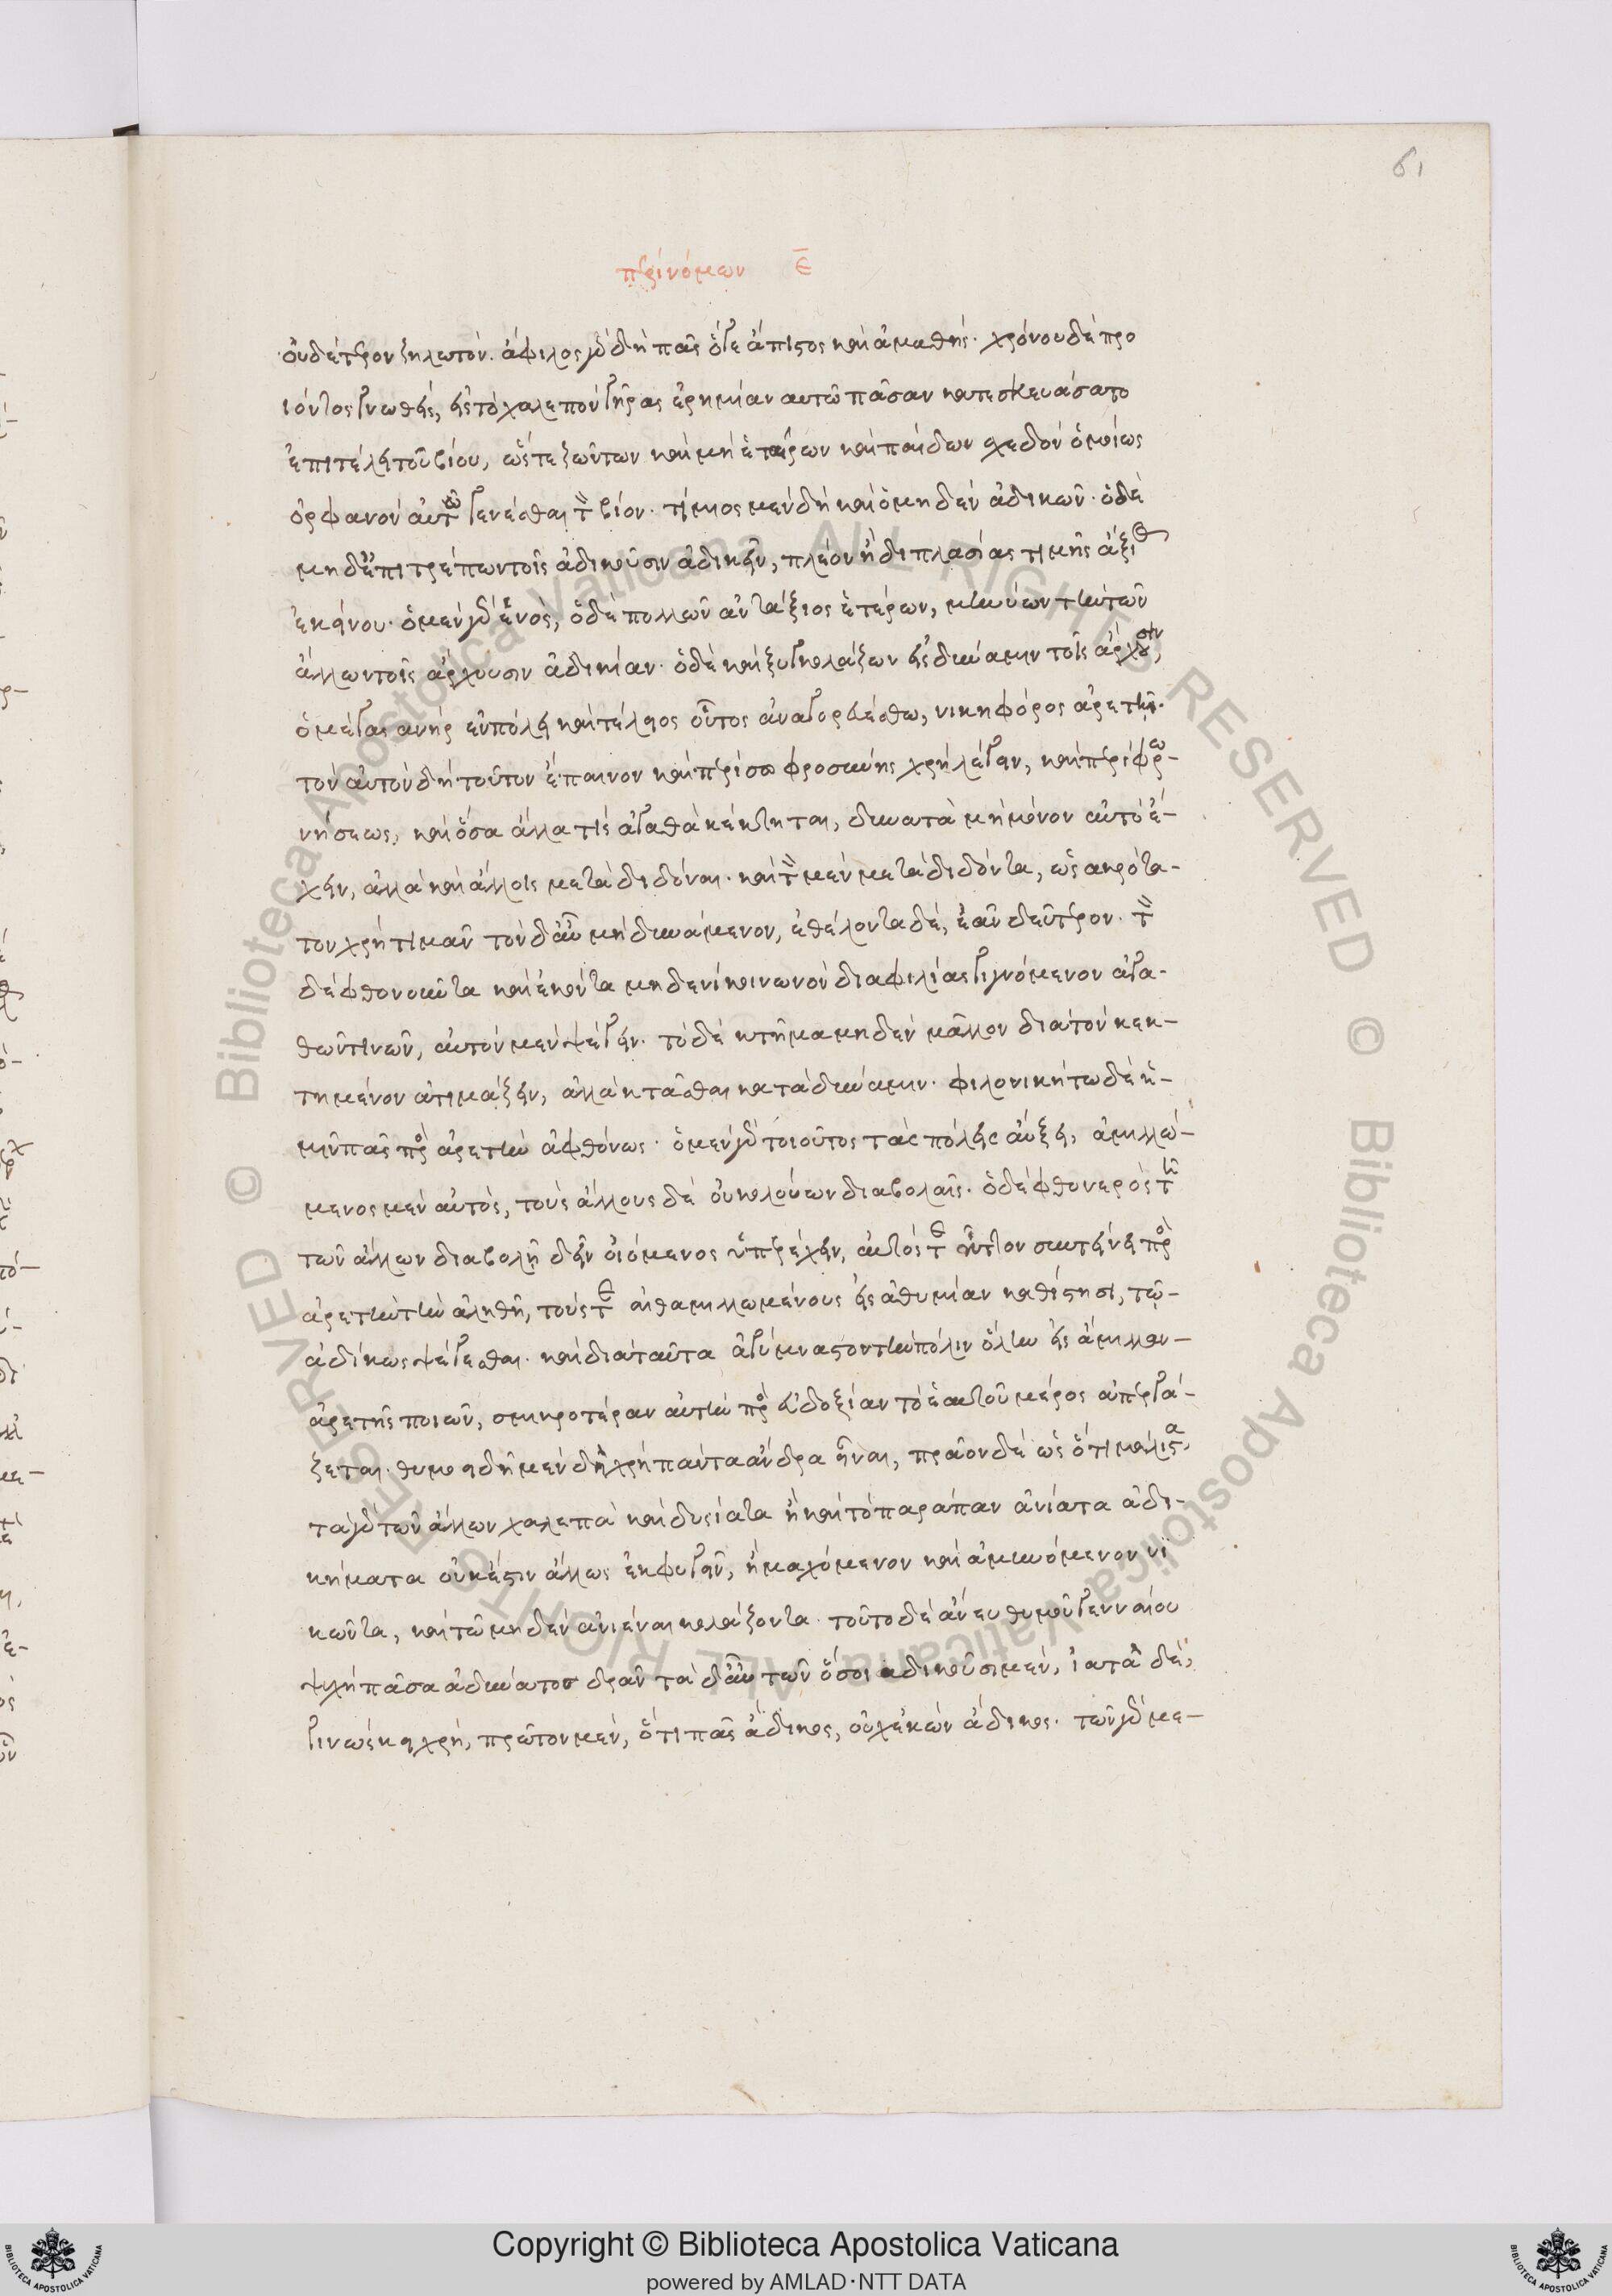 61
περὶ νόμων ε̄
οὐδέτερον ζηλωτόν. ἄφιλος γὰρ δὴ πᾶς ὅγε ἄπιστος καὶ ἀμαθής. χρόνου δὲ προ
ιόντος γνωσθείς, εἰς τὸ χαλεπὸν γῆρας ἐρημίαν αυτῶ πᾶσαν κατεσκευάσατο
ἐπὶ τέλει τοῦ βίου, ὥστε ζώντων καὶ μὴ ἑταίρων καὶ παίδων σχεδὸν ὁμοίως
ὀρφανὸν αὐτῶ γενέσθαι τὸν βίον. τίμιος μὲν δὴ καὶ ὁ μηδὲν ἀδικῶν. ὁ δὲ
μηδ' ἐπιτρέπων τοῖς ἀδικοῦσιν ἀδικεῖν, πλέον ἢ διπλασίας τιμῆς ἄξιος
ἐκείνου. ὁ μὲν γὰρ ἑνὸς, ὁ δὲ πολλῶν ἀντάξιος ἑτέρων, μηνύων τὴν τῶν
ἄλλων τοῖς ἄρχουσιν ἀδικίαν. ὁ δὲ καὶ ξυγκολάζων εἰς δύναμιν τοῖς ἄρχουσιν,
ὁ μέγας ανὴρ ἐν πόλει καὶ τέλειος οὗτος ἀναγορευέσθω, νικηφόρος ἀρετῆι.
τὸν αὐτὸν δὴ τοῦτον ἔπαινον καὶ περὶ σωφροσύνης χρὴ λέγειν, καὶ περὶ φρο-
νήσεως, καὶ ὅσα ἄλλα τις ἀγαθὰ κέκτηται, δυνατὰ μὴ μόνον αὐτὸ ἔ-
χειν, ἀλλὰ καὶ ἄλλοις μεταδιδόναι. καὶ τὸν μὲν μεταδιδόντα, ὡς ακρότα-
τον χρὴ τιμᾶν τὸν δ' αὖ μὴ δυνάμενον, ἐθέλοντα δὲ, ἐᾶν δεύτερον. τὸν
δὲ φθονοῦντα καὶ ἑκόντα μηδενὶ κοινωνὸν διὰ φιλίας γιγνόμενον ἀγα-
θῶν τινῶν, αὐτὸν μὲν ψέγειν. τὸ δὲ κτῆμα μηδὲν μᾶλλον διὰ τὸν κεκ-
τημένον ἀτιμάζειν, ἀλλὰ κτᾶσθαι κατὰ δύναμιν. φιλονικήτω δὲ ἡ-
μῖν πᾶς πρὸς ἀρετὴν ἀφθόνως. ὁ μὲν γὰρ τοιοῦτος τὰς πόλεις αὔξει, ἁμιλλώ-
μενος μὲν αὐτὸς, τοὺς ἄλλους δὲ οὐ κολούων διαβολαῖς. ὁ δὲ φθονερὸς τῆ
τῶν ἄλλων διαβολῆ δεῖν οἰόμενος ὑπερέχειν, αὐτός τε ἧττον συντείνει πρὸς
ἀρετὴν τὴν ἀληθῆ, τούς τε ἀνθαμιλλωμένους εἰς ἀθυμίαν καθίστησι, τῶ-
ἀδίκως ψέγεσθαι. καὶ διὰ ταῦτα ἀγύμναστον τὴν πόλιν ὅλην εἰς ἅμιλλαν-
ἀρετῆς ποιῶν, σμικροτέραν αὐτὴν πρὸς εὐδοξίαν τὸ ἑαυτοῦ μέρος ἀπεργά-
ζεται. θυμοειδῆ μὲν δὴ χρὴ πάντα ἄνδρα εἶναι, πρᾶον δὲ ὡς ὅτι μάλιστα.
τὰ γὰρ τῶν ἄλλων χαλεπὰ καὶ δυσίατα ἢ καὶ τὸ παράπαν ἀνίατα ἀδι-
κήματα οὐκ ἔστιν ἄλλως ἐκφυγεῖν, ἢ μαχόμενον καὶ ἀμυνόμενον νι
κῶντα, καὶ τῶ μηδὲν ἀνιέναι κολάζοντα. τοῦτο δὲ ἄνευ θυμοῦ γενναίου
ψυχὴ πᾶσα ἀδύνατος δρᾶν τὰ δ' αὖ τῶν ὅσοι αδικοῦσι μὲν, ἰατὰ δὲ,
γινώσκειν χρὴ, πρῶτον μὲν, ὅτι πᾶς ἄδικος, οὐχ ἑκὼν ἄδικος. τῶν γὰρ με-
Copyright © Biblioteca Apostolica Vaticana
powered by AMLAD·NTT DATA